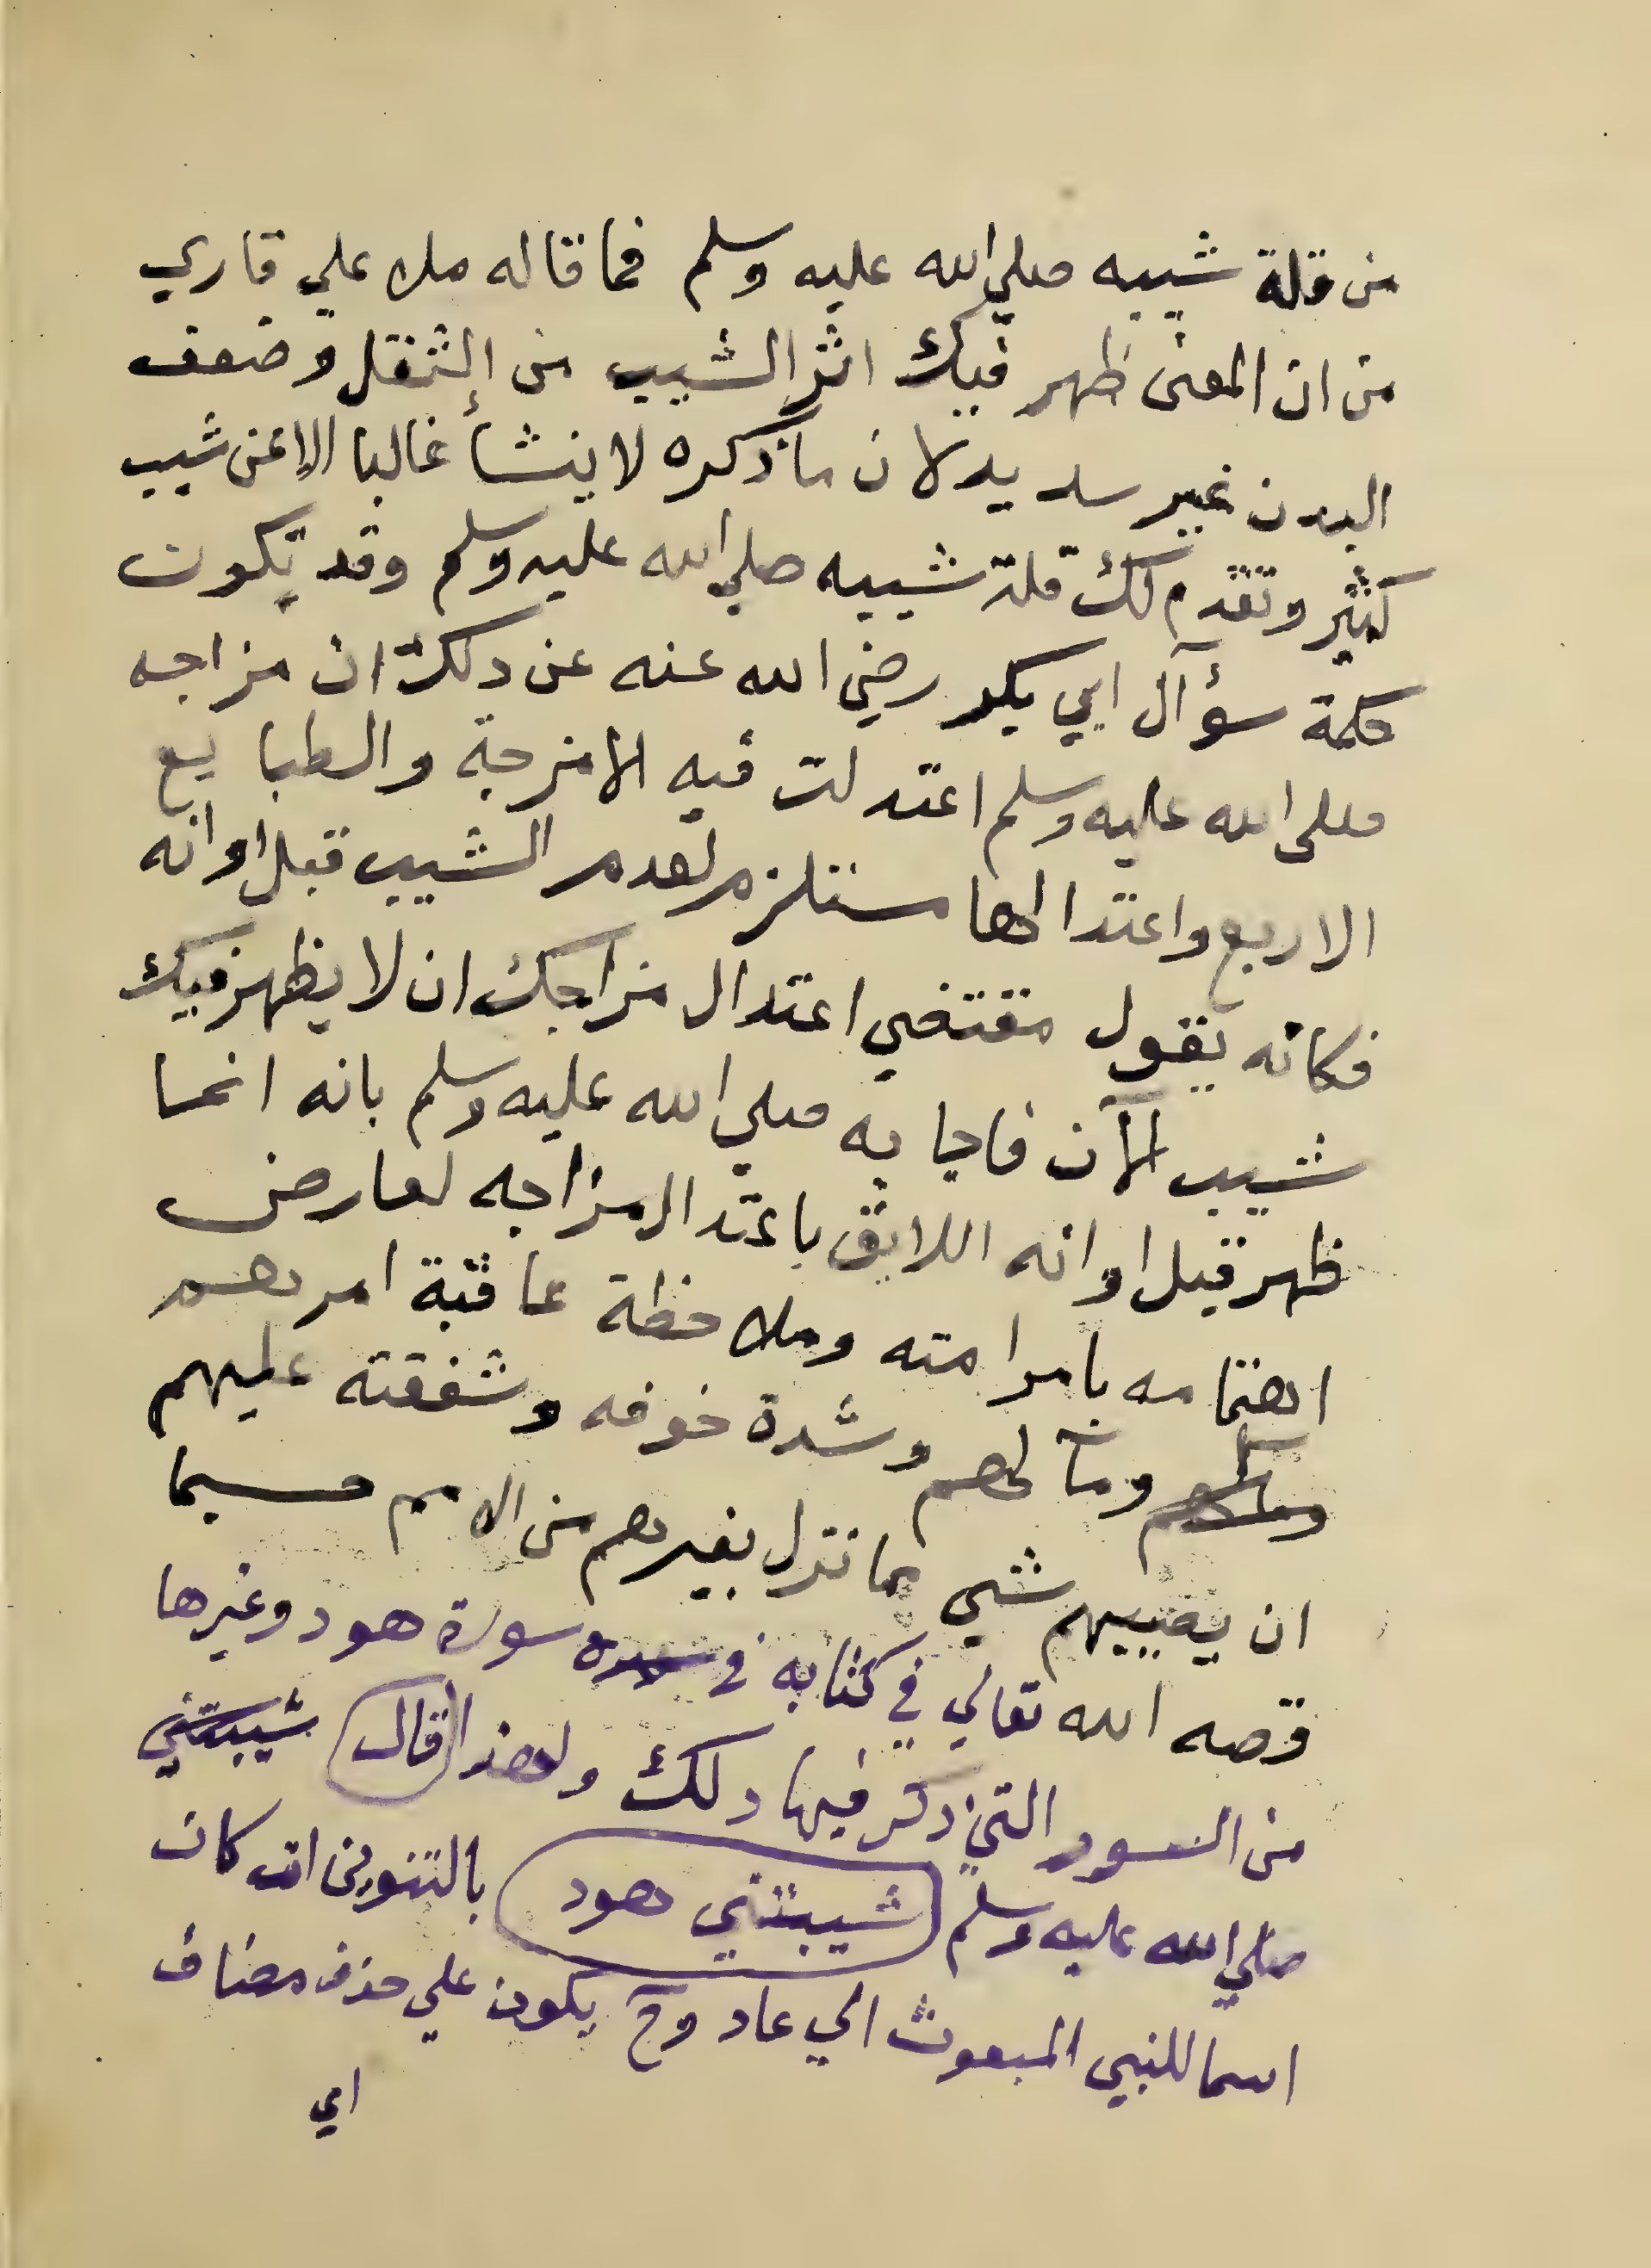 من قلة شيبه صلي الله عليه وسلم فما قاله ملا علي قاري
من ان المعنى ظهر فيك اثر الشيب من الثقل وضعف
البدن غير سديد لان ما ذكره لا ينشأ غالبا الا عن شيب
كثير وتقدم لك قلة شيبه صلي الله عليه وسلم وقد تكون
حكمة سؤآل ابي بكر رضي الله عنه عن دلك ان مزاجه
صلى الله عليه وسلم اعتدلت فيه الامزجة والطبايع
الاربع واعتدالها مستلزم لعدم الشيب قبل اوانه
فكانه يقول مقتضي اعتدال مزاجك ان لا يظهر فيك
شيب الآن فاجابه صلي الله عليه وسلم بانه انما
ظهر قبل اوانه اللايق باعتدال مزاجه لعارض
اهتمامه بامر امته وملاحظة عاقبة امرهم
ومآلهم ومآلهم وشدة خوفه وشفقته عليهم
ان يصيبهم شي مما نزل بغيرهم من الامم حسبما
قصه الله تعالي في كتابه في سوره سورة هود وغيرها
من السور التي ذكر فيها دلك ولهذا قال شيبتني
صلي الله عليه وسلم شيبتني هود بالتنوين ان كان
اسما للنبي المبعوث الي عاد وح يكون علي حذف مضاف
اي